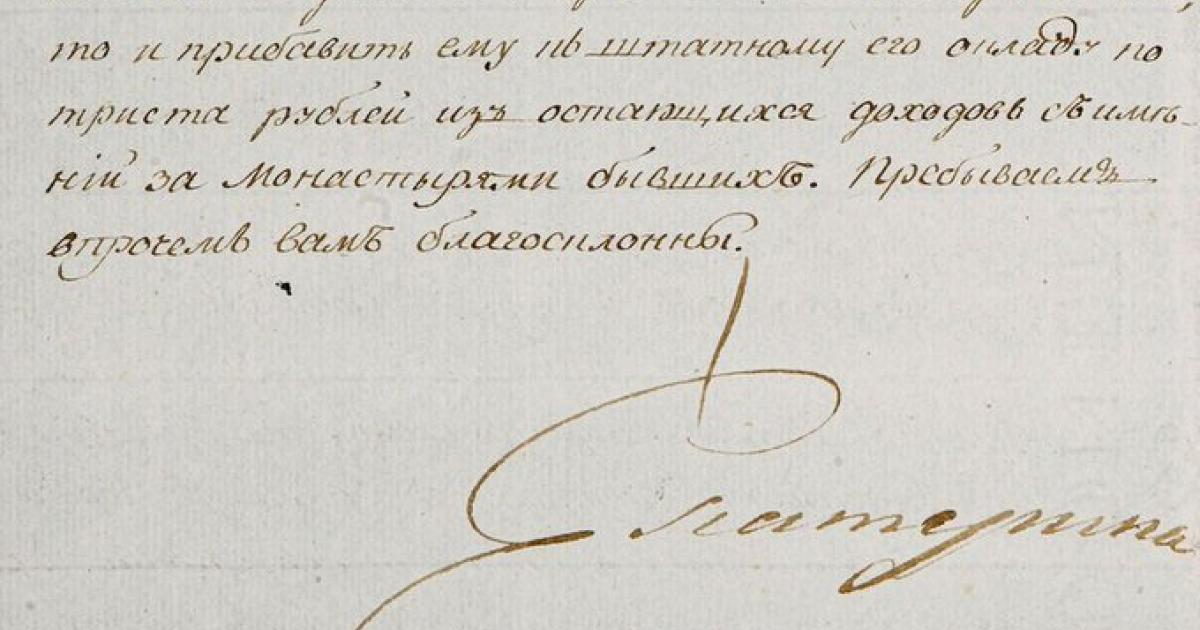 то и прибавить ему къ штатному его окладу по
триста рублей изъ остающихся доходовъ съ имѣ-
ній за Монастырями бывшихъ. Пребываемъ
впрочемъ вамъ благосклонны.
Екатерина